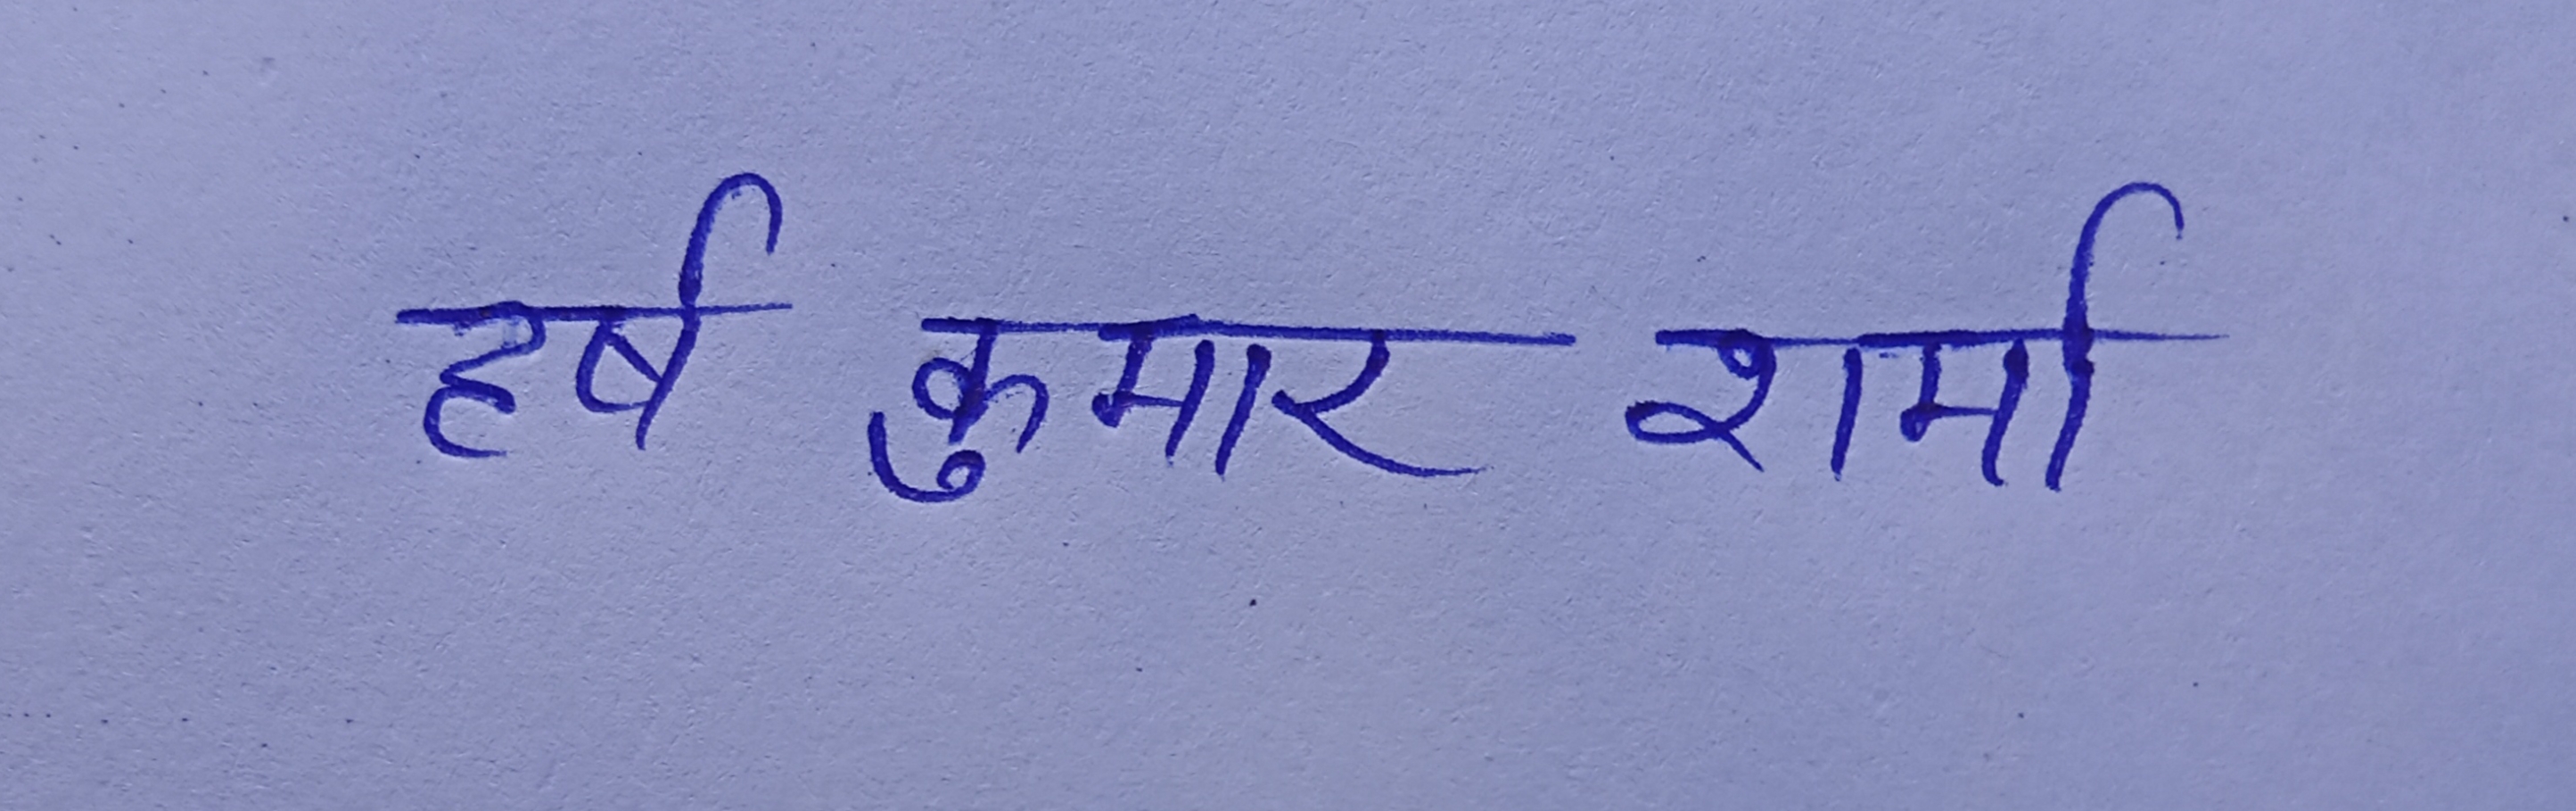 हर्ष कुमार शर्मा